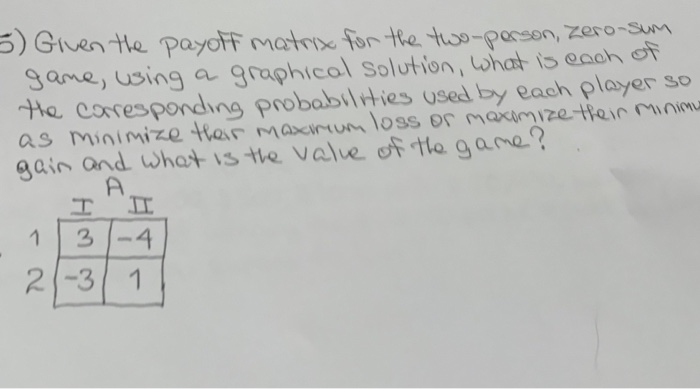 5) Given the payoff matrix for the two-person, zero-sum
game, using a graphical solution, what is each of
the corresponding probabilities used by each player so
as minimize their maximum loss or maximize their minim
gain and what is the value of the game?
A
I II
1 3 -4
2 -3 1